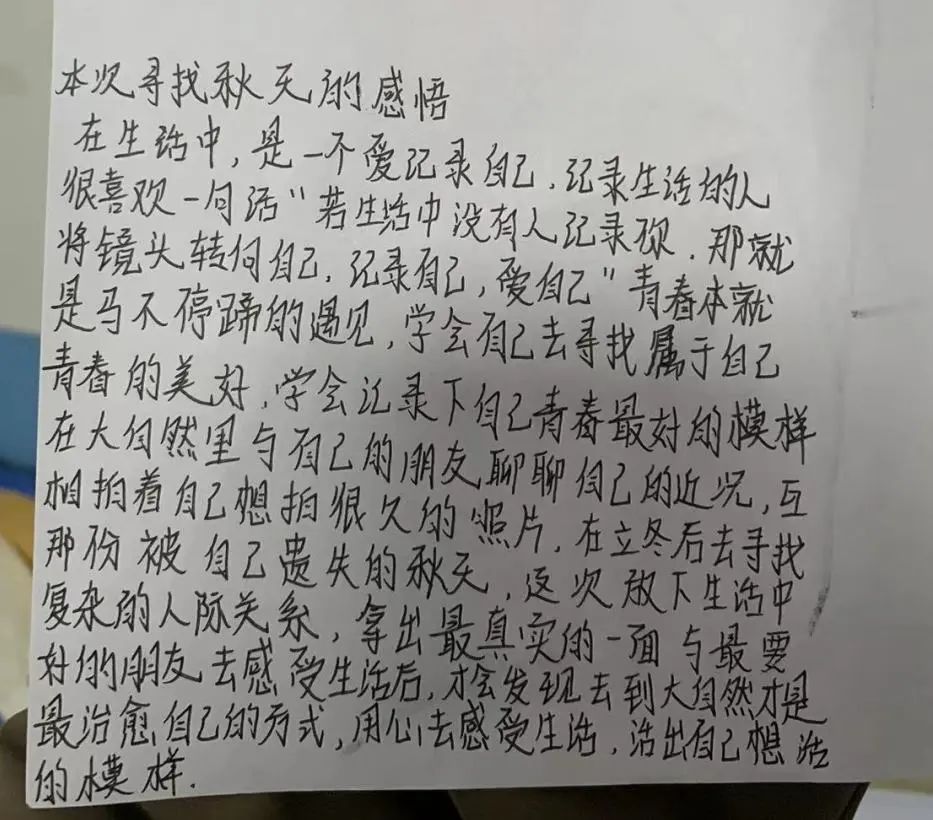 本次寻找秋天的感悟
在生活中,是一个爱记录自己,记录生活的人
很喜欢一句话"若生活中没有人记录你,那就
将镜头转向自己,记录自己,爱自己"青春本就
是马不停蹄的遇见,学会自己去寻找属于自己
青春的美好,学会记录下自己青春最好的模样
在大自然里与自己的朋友聊聊自己的近况,互
相拍着自己想拍很久的照片,在立冬后去寻找
那份被自己遗失的秋天,这次放下生活中
复杂的人际关系,拿出最真实的一面与最要
好的朋友去感受生活后,才会发现去到大自然才是
最治愈自己的方式,用心去感受生活,活出自己想活
的模样.